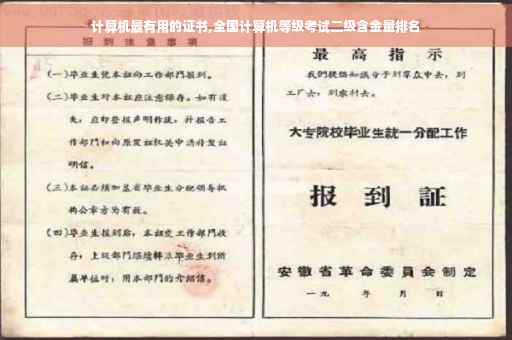 计算机最有用的证书,全国计算机等级考试二级含金量排名
报到注意事项
(一)毕业生凭本証向工作部門报到。
(二)毕业生对本証应注意保存。如有遺
失,应即登报声明作廢,并报告工
作部門和向原发証机关申請补发証
明信。
(三)本証必須加盖省毕业生分配領导机
构公章方为有效。
(四)毕业生报到后,本証交工作部門收
存,上級部門繼續轉派毕业生到所
属单位时,用本部門的介紹信。
最高指示
我們提倡知識分子到羣众中去,到
工厂去,到农村去。
大专院校毕业生統一分配工作
报到証
安徽省革命委員会制定
一九 年 月 日